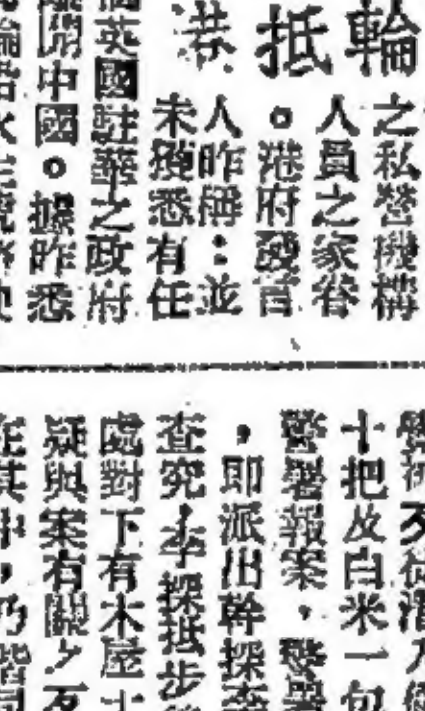 輪抵港
之私營機構
人員之家眷
。港府發言
人昨稱：並
未獲悉有任
英國駐華之政府
開中國。據昨悉
十把及白米一包
警署報案，警署
，即派出幹探李
查究，李探抵步
處對下有木屋十
疑與案有關之
在其中，乃